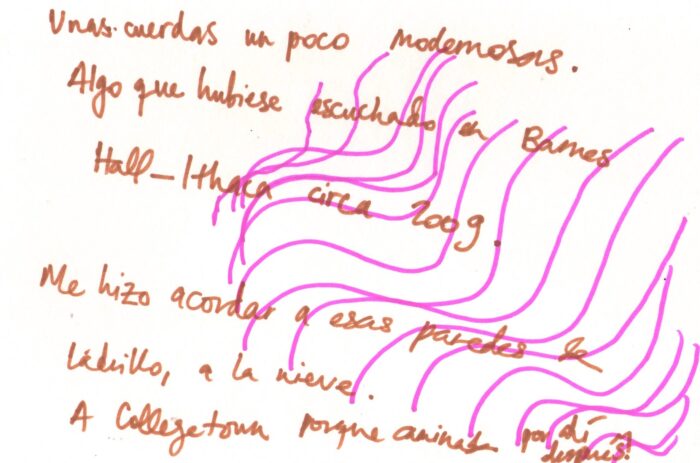 Unas cuerdas un poco modernosas.
Algo que hubiese escuchado en Barnes
Hall - Ithaca circa 2009.
Me hizo acordar a esas paredes de
ladrillo, a la nieve.
A Collegetown porque caminaba por ahí
después.